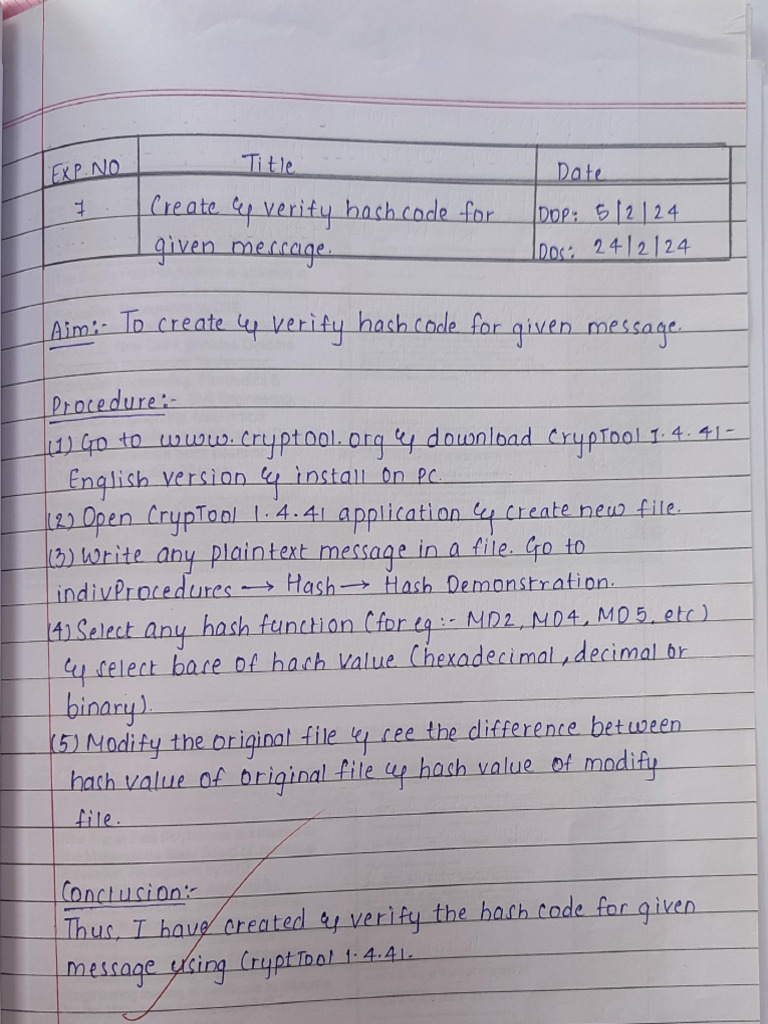 EXP.NO Title Date
7 Create & verify hash code for DOP: 5/2/24
given message. DOS: 24/2/24
Aim:- To create & verify hash code for given message.
Procedure:-
(1) Go to www.cryptool.org & download CrypTool 1.4.41-
English version & install on PC.
(2) Open CrypTool 1.4.41 application & create new file.
(3) Write any plaintext message in a file. Go to
indivProcedures → Hash → Hash Demonstration.
(4) Select any hash function (for eg:- MD2, MD4, MD5, etc)
& select base of hash value (hexadecimal, decimal or
binary).
(5) Modify the original file & see the difference between
hash value of original file & hash value of modify
file.
Conclusion:-
Thus, I have created & verify the hash code for given
message using CryptTool 1.4.41.